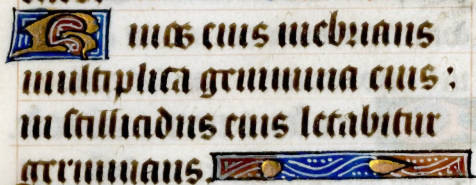 Riuos eius inebrians
multiplica genimina eius :
in stillicidiis eius letabitur
germinans.